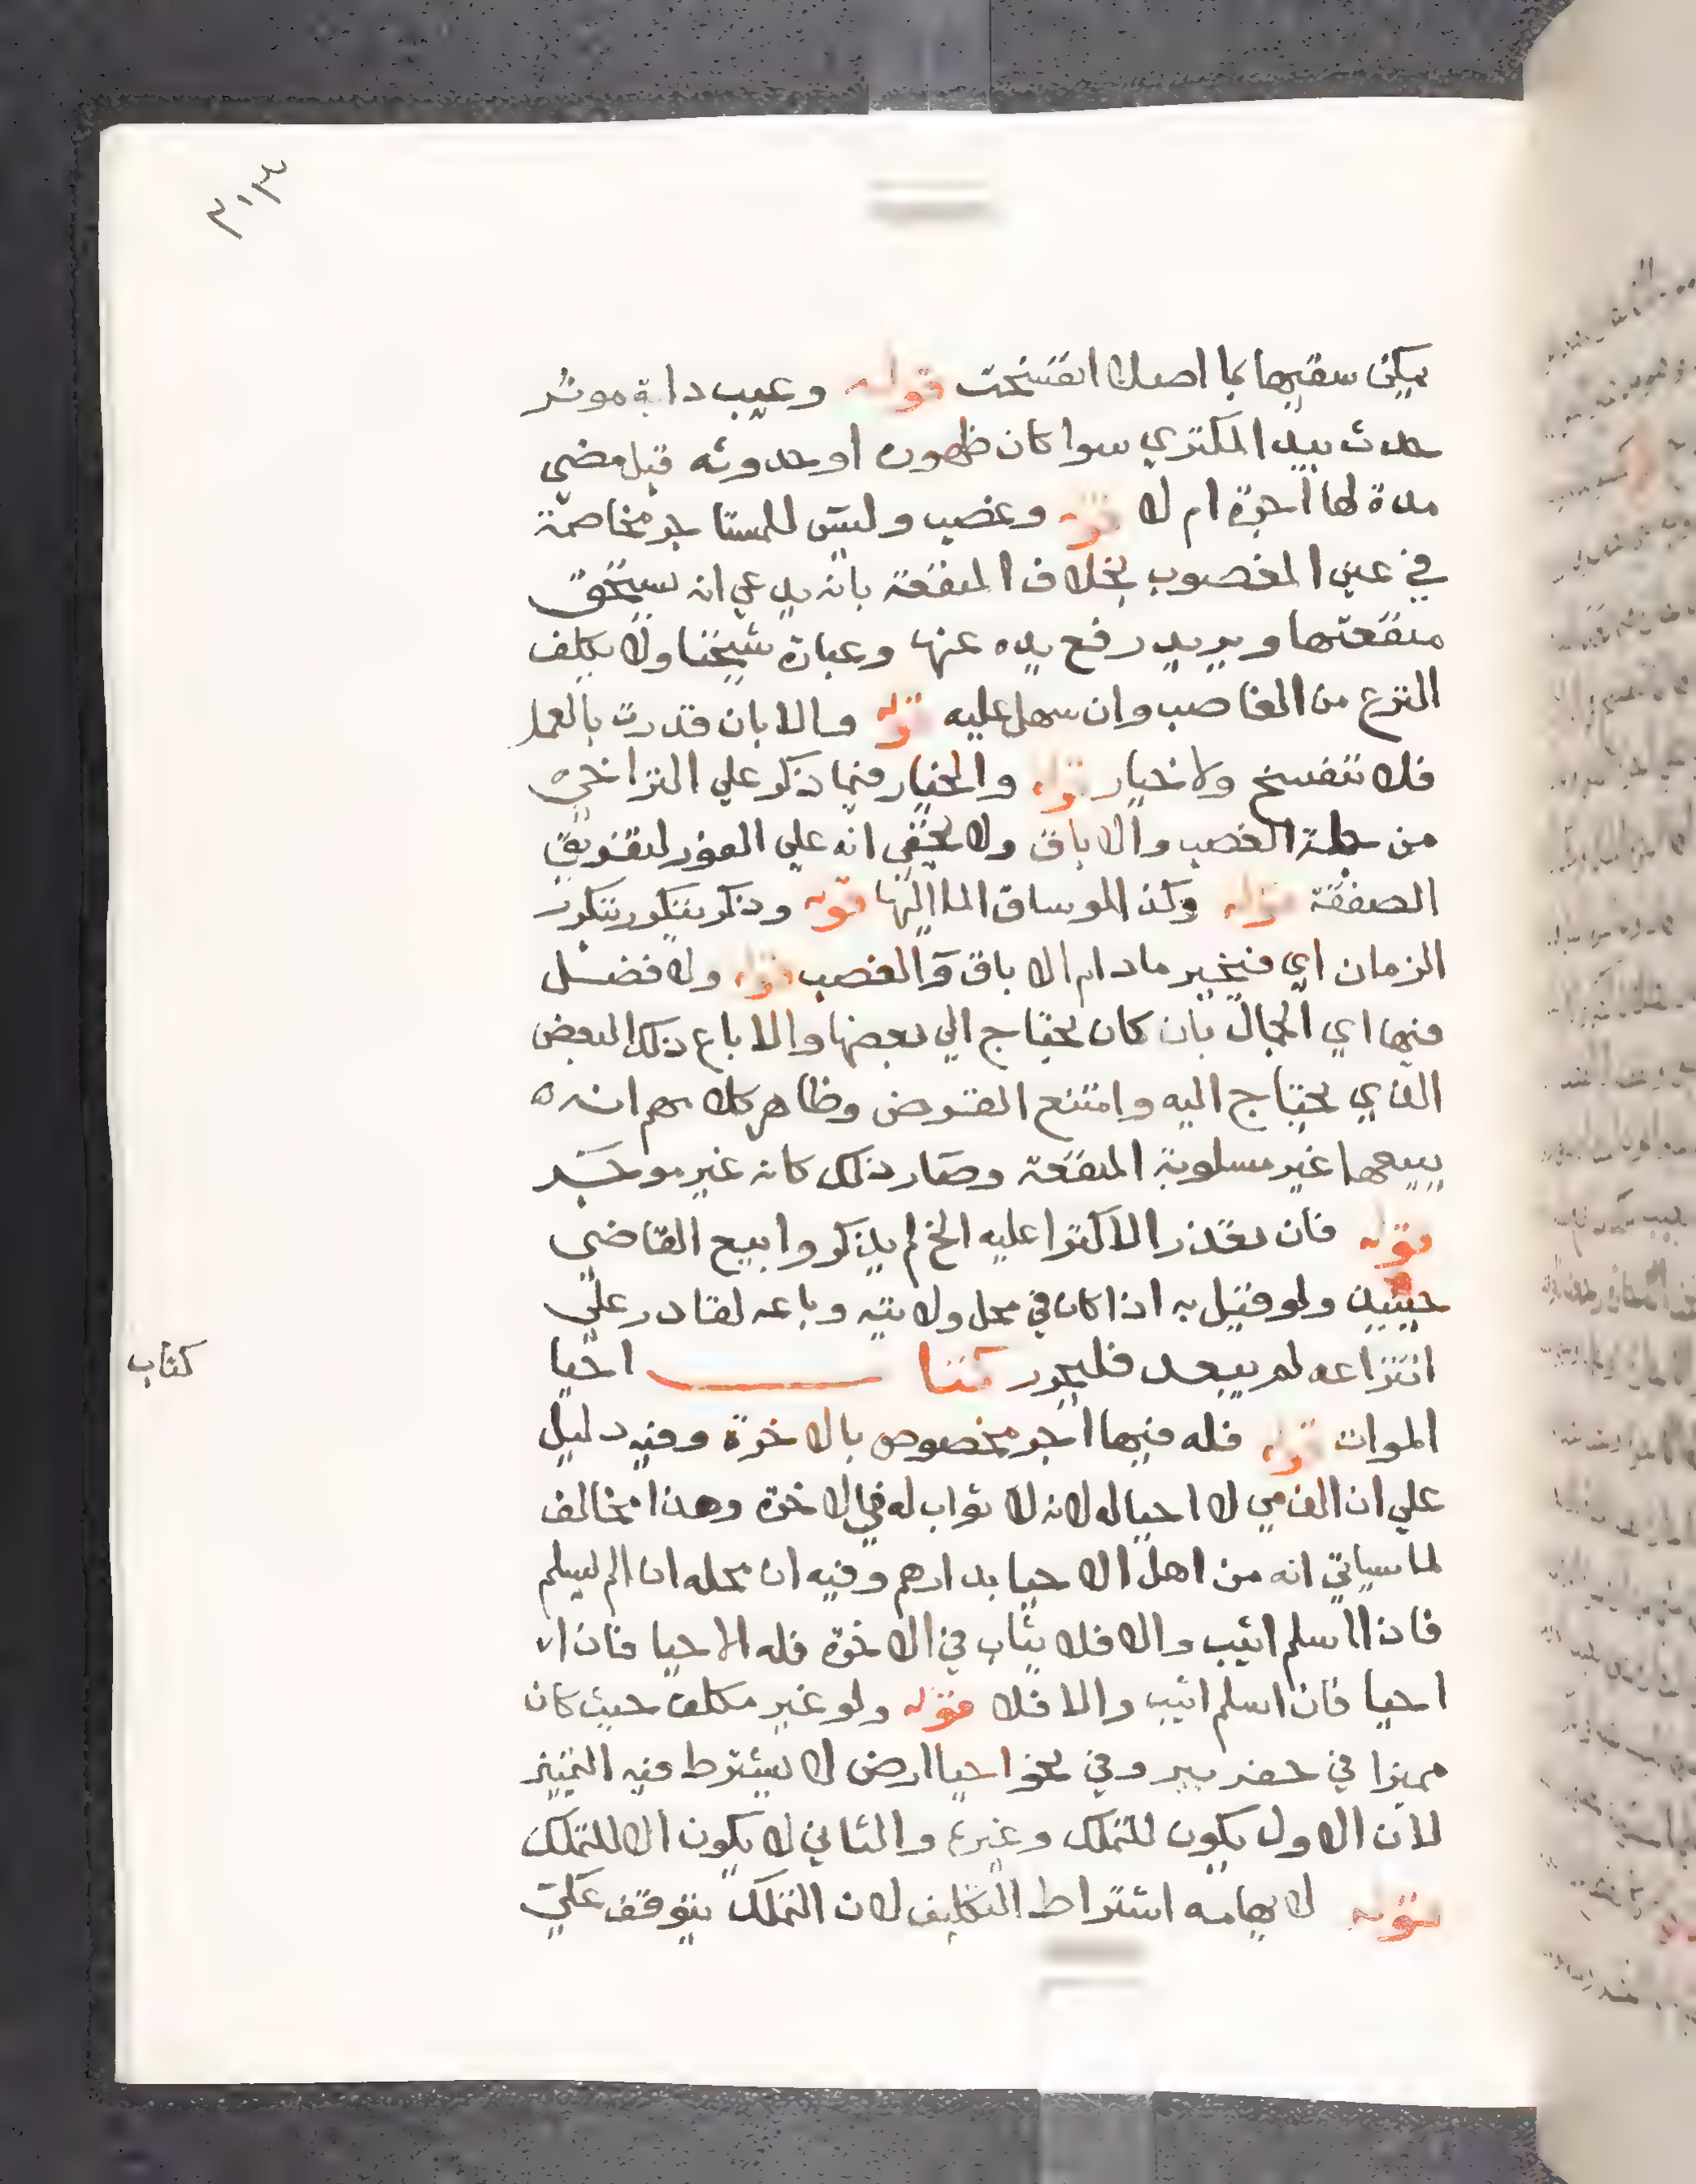 ٣٠٣
يمكن سقيها بما اصلا انفسخت قوله وعيب دابة موثر
حدث بيد المكتري سوا كان ظهوره او حدوثه قبل مضي
مدة لها اجرة ام لا قوله وغصب وليس للمستاجر مخاصمة
في عين المغصوب بخلاف المنفعة بانه يدعي انه يستحق
منفعتها ويريد رفع يده عنها وعبارة شيخنا ولا يكلف
النزع من الغاصب وان سهل عليه قوله والا بان قدرت بالعمل
فلا تنفسخ ولا خيار قوله والخيار فيما ذكر علي التراخي ه
من جملة الغصب والاباق ولا يخفي انه علي الفور لتفويق
الصفقة قوله وكذا لو ساق الما اليها قوله وذكر يتكرر بتكرر
الزمان اي فيخير ما دام الاباق والغصب قوله ولا فضل
فيها اي الجمال بان كان يحتاج الي بعضها والا باع ذلك البعض
الذي يحتاج اليه وامتنع القرض وظاهر كلامهم انه ه
يبيعها غير مسلوبة المنفعة وصار ذلك كانه غير موجر
قوله فان تعذر الاكترا عليه الخ لم يذكروا بيع القاضي
حينيذ ولو قيل به اذا كان في محل ولايته وباعه لقادر علي
انتزاعه لم يبعد فليحرر كتا ب احيا
كتاب
الموات قوله فله فيها اجر مخصوص بالاخرة وفيه دليل
علي ان الذمي لا احيا له لانه لا ثواب له في الاخرة وهذا مخالف
لما سياتي انه من اهل الاحيا بدارهم وفيه ان محله ان لم يسلم
فاذا اسلم اثيب والا فلا يثاب في الاخرة فله الاحيا فان ا
احيا فان اسلم اثيب والا فلا قوله ولو غير مكلف حيث كان
مميزا في حفر بير وفي نحو احيا ارض لا يشترط فيه التمييز
لان الاول يكون للتملك وغيره والثاني لا يكون الا للتملك
قوله لايهامه اشتراط التكليف لان التملك يتوقف علي